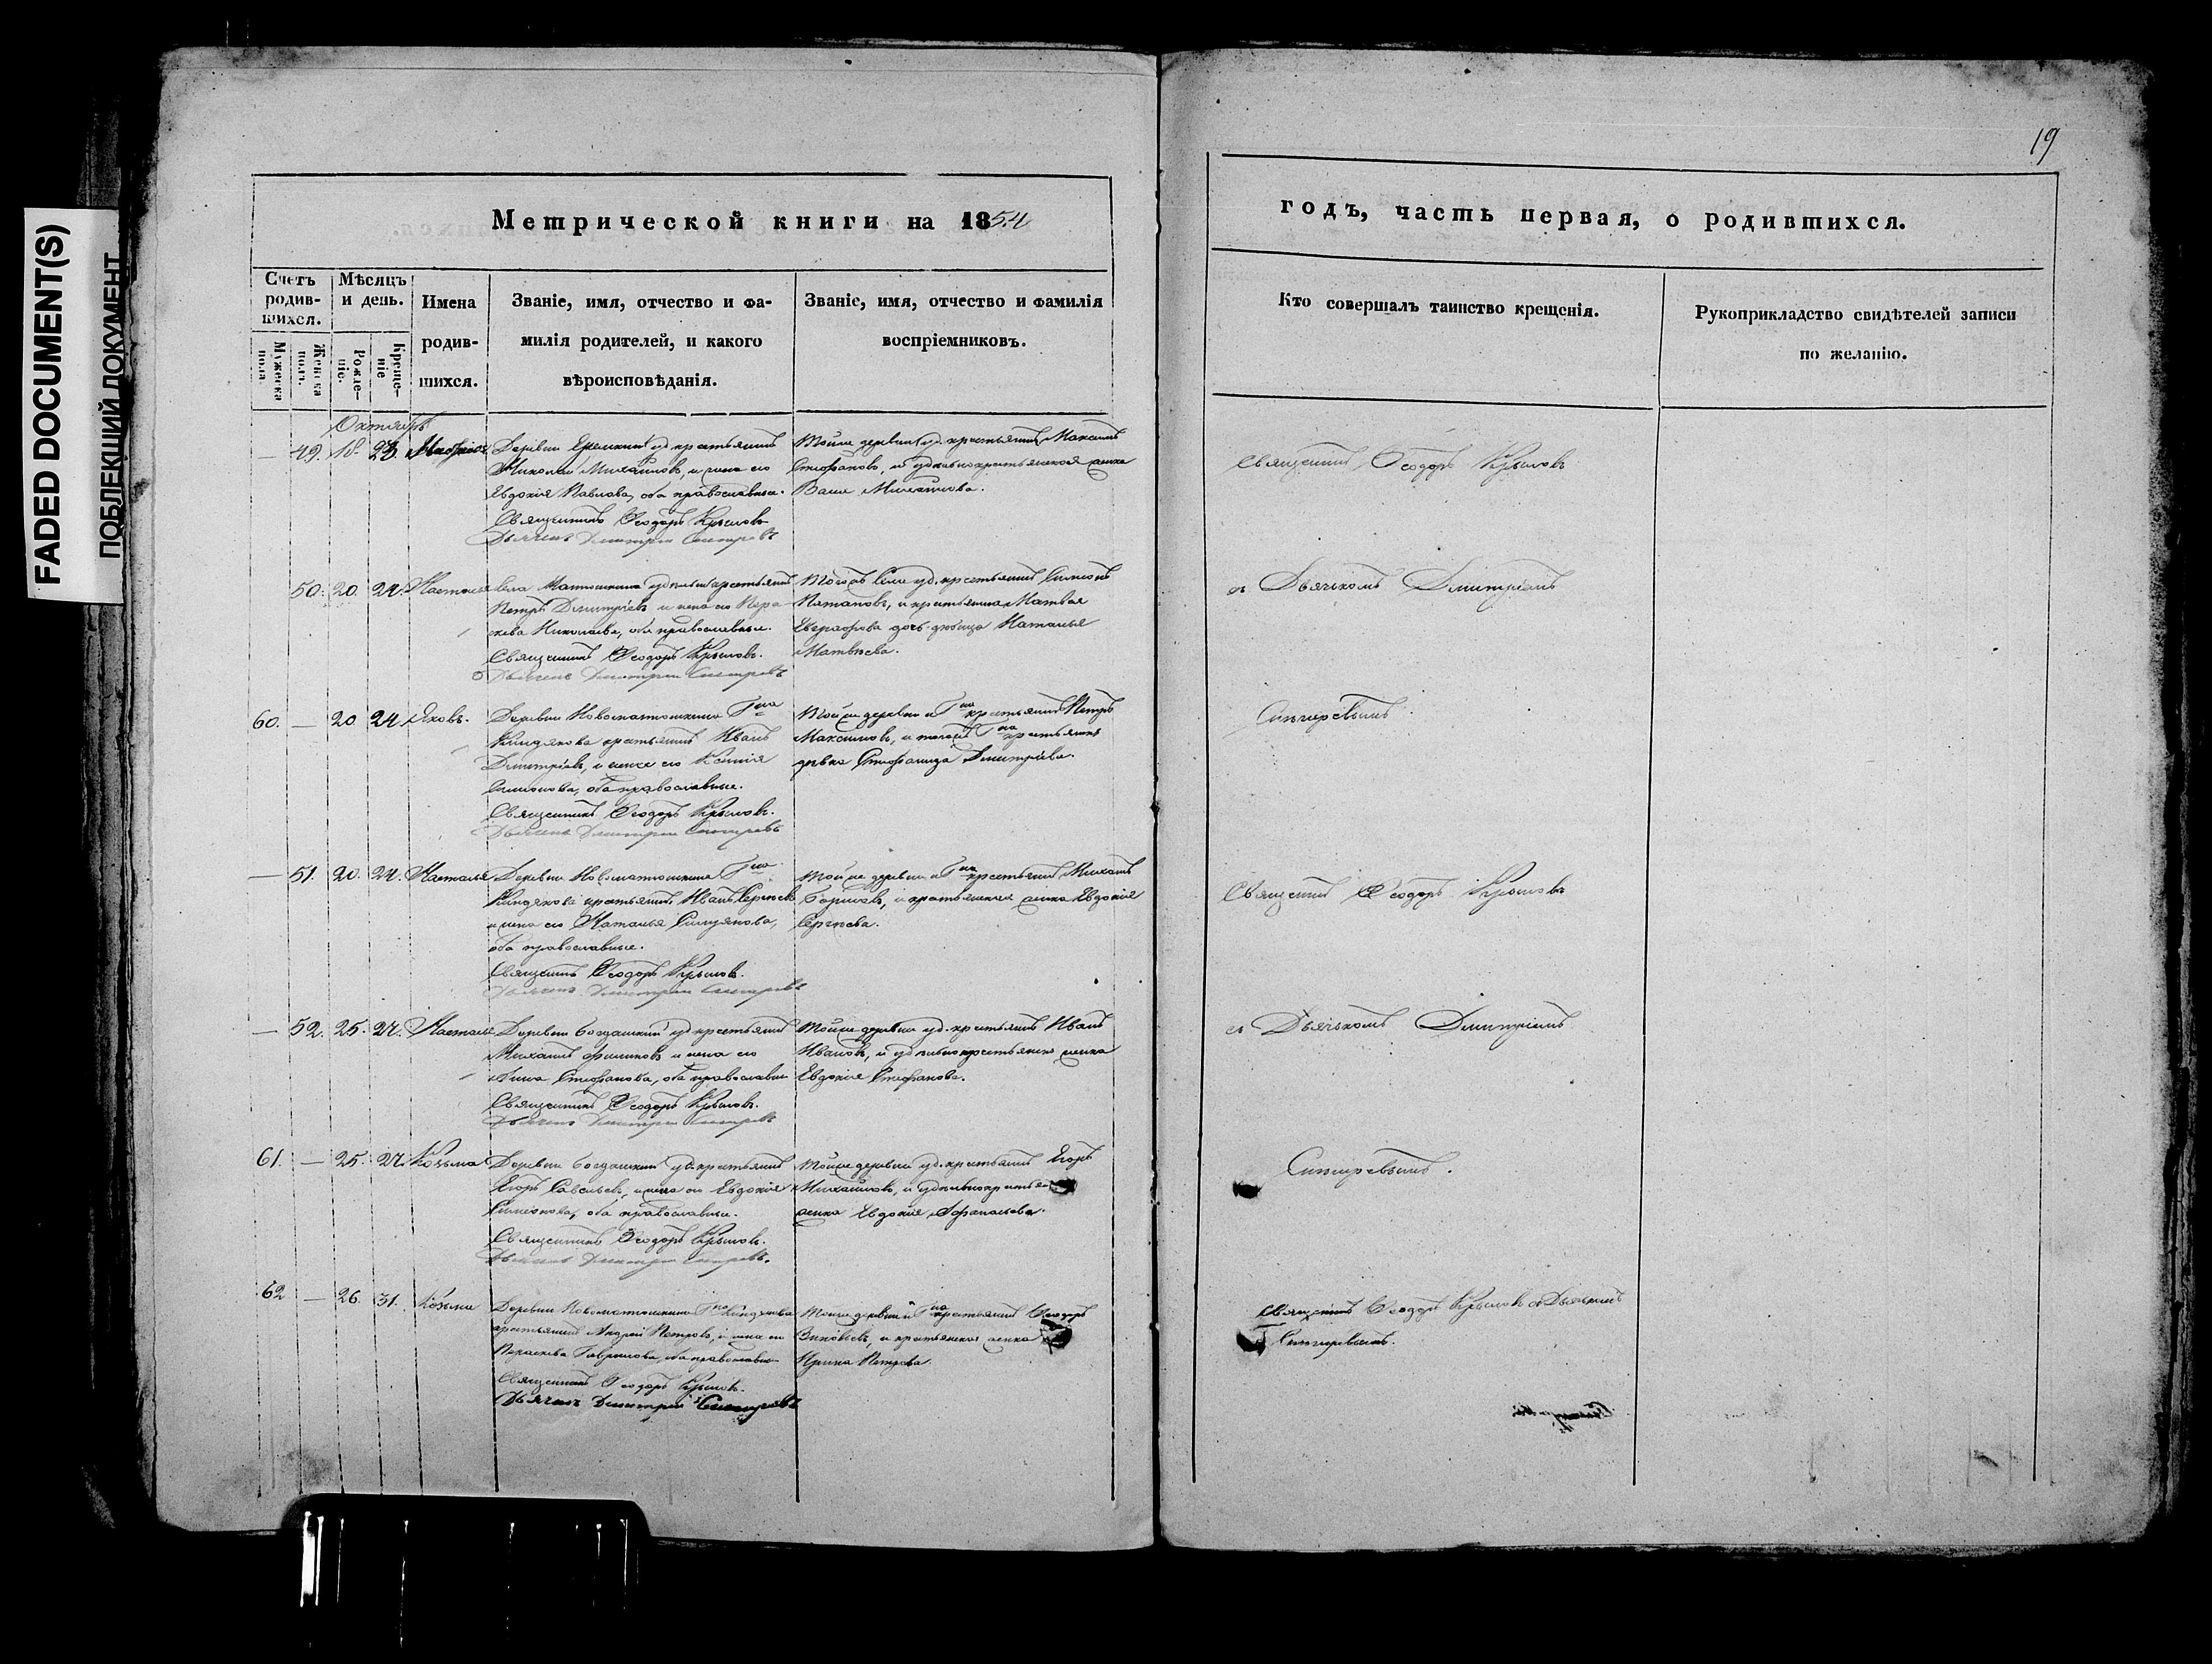 FADED DOCUMENT(S)
ПОБЛЕКШИЙ ДОКУМЕНТ
19
Метрической книги на 1854
годъ, часть первая, о родившихся.
Счетъ родив-шихся.
Мужеска пола
Женска пола.
Мѣсяцъ и день.
Рожде-ніе.
Креще-ніе
Имена родив-шихся.
Званіе, имя, отчество и фа-
милія родителей, и какого
вѣроисповѣданія.
Званіе, имя, отчество и фамилія
воспріемниковъ.
Кто совершалъ таинство крещенія.
Рукоприкладство свидѣтелей записи
по желанію.
Октябрь
— 49. 18. 23.
Деревни уд. крестьянинъ
Николай Михайловъ, и жена его
Евдокія Павлова, оба православные.
Священникъ Ѳеодоръ Крыловъ
Дьячекъ Димитрій Снегиревъ
Тойже деревни уд. крестьянинъ Максимъ
Стефановъ, и удѣльнокрестьянская женка
Михайлова.
Священникъ Ѳеодоръ Крыловъ
50. 20. 24. Наталья
Села Матюшкина удѣльн. крестьянинъ
Петръ Димитріевъ и жена его Пара
скева Николаева, оба православные.
Священникъ Ѳеодоръ Крыловъ.
Дьячекъ Димитрій Снегиревъ
Тогожъ Села уд. крестьянинъ Симеонъ
Потаповъ, и крестьянина Матвея
Евграфова дочь дѣвица Наталья
Матвѣева.
съ Дьячкомъ Димитріемъ
60. — 20 24 Яковъ.
Деревни Новоматюшкина Гна
Киндякова крестьянинъ Иванъ
Димитріевъ, и жена его Ксенія
Симеонова, оба православные.
Священникъ Ѳеодоръ Крыловъ.
Дьячекъ Димитрій Снегиревъ
Тойже деревни и Гна крестьянинъ Петръ
Максимовъ, и тогожъ Гна крестьянск.
дѣвка Стефанида Димитріева.
Снегиревымъ
— 51. 20. 24. Наталья
Деревни Новоматюшкина Гна
Киндякова крестьянинъ Иванъ Сергѣевъ
и жена его Наталья
оба православные.
Священникъ Ѳеодоръ Крыловъ.
Дьячекъ Димитрій Снегиревъ
Тойже деревни и Гна крестьянинъ Михаилъ
Борисовъ, и крестьянская женка Евдокія
Сергѣева.
Священникъ Ѳеодоръ Крыловъ
— 52. 25. 27. Наталья
Деревни Богдашкиной уд. крестьянинъ
Михаилъ Филиповъ и жена его
Анна Стефанова, оба православные
Священникъ Ѳеодоръ Крыловъ.
Дьячекъ Димитрій Снегиревъ
Тойже деревни уд. крестьянинъ Иванъ
Ивановъ, и удѣльнокрестьянск. женка
Евдокія Стефанова.
съ Дьячкомъ Димитріемъ
61. — 25. 27. Козьма
Деревни Богдашкиной уд. крестьянинъ
Егоръ Савельевъ, и жена его Евдокія
Симеонова, оба православные.
Священникъ Ѳеодоръ Крыловъ.
Дьячекъ Димитрій Снегиревъ.
Тойже деревни уд. крестьянинъ Егоръ
Михайловъ, и удѣльнокрестьян
женка Евдокія Афанасьева.
Снегиревымъ.
62 — 26. 31. Козьма
Деревни Новоматюшкина Гна Киндякова
крестьянинъ Андрей Петровъ, и жена его
Параскева Гаврилова, оба православные
Священникъ Ѳеодоръ Крыловъ.
Дьячекъ Димитрій Снегиревъ
Тойже деревни и Гна крестьянинъ Ѳеодоръ
Зиновьевъ, и крестьянская женка
Ирина Петрова
Священникъ Ѳеодоръ Крыловъ съ Дьячкомъ
Снегиревымъ.